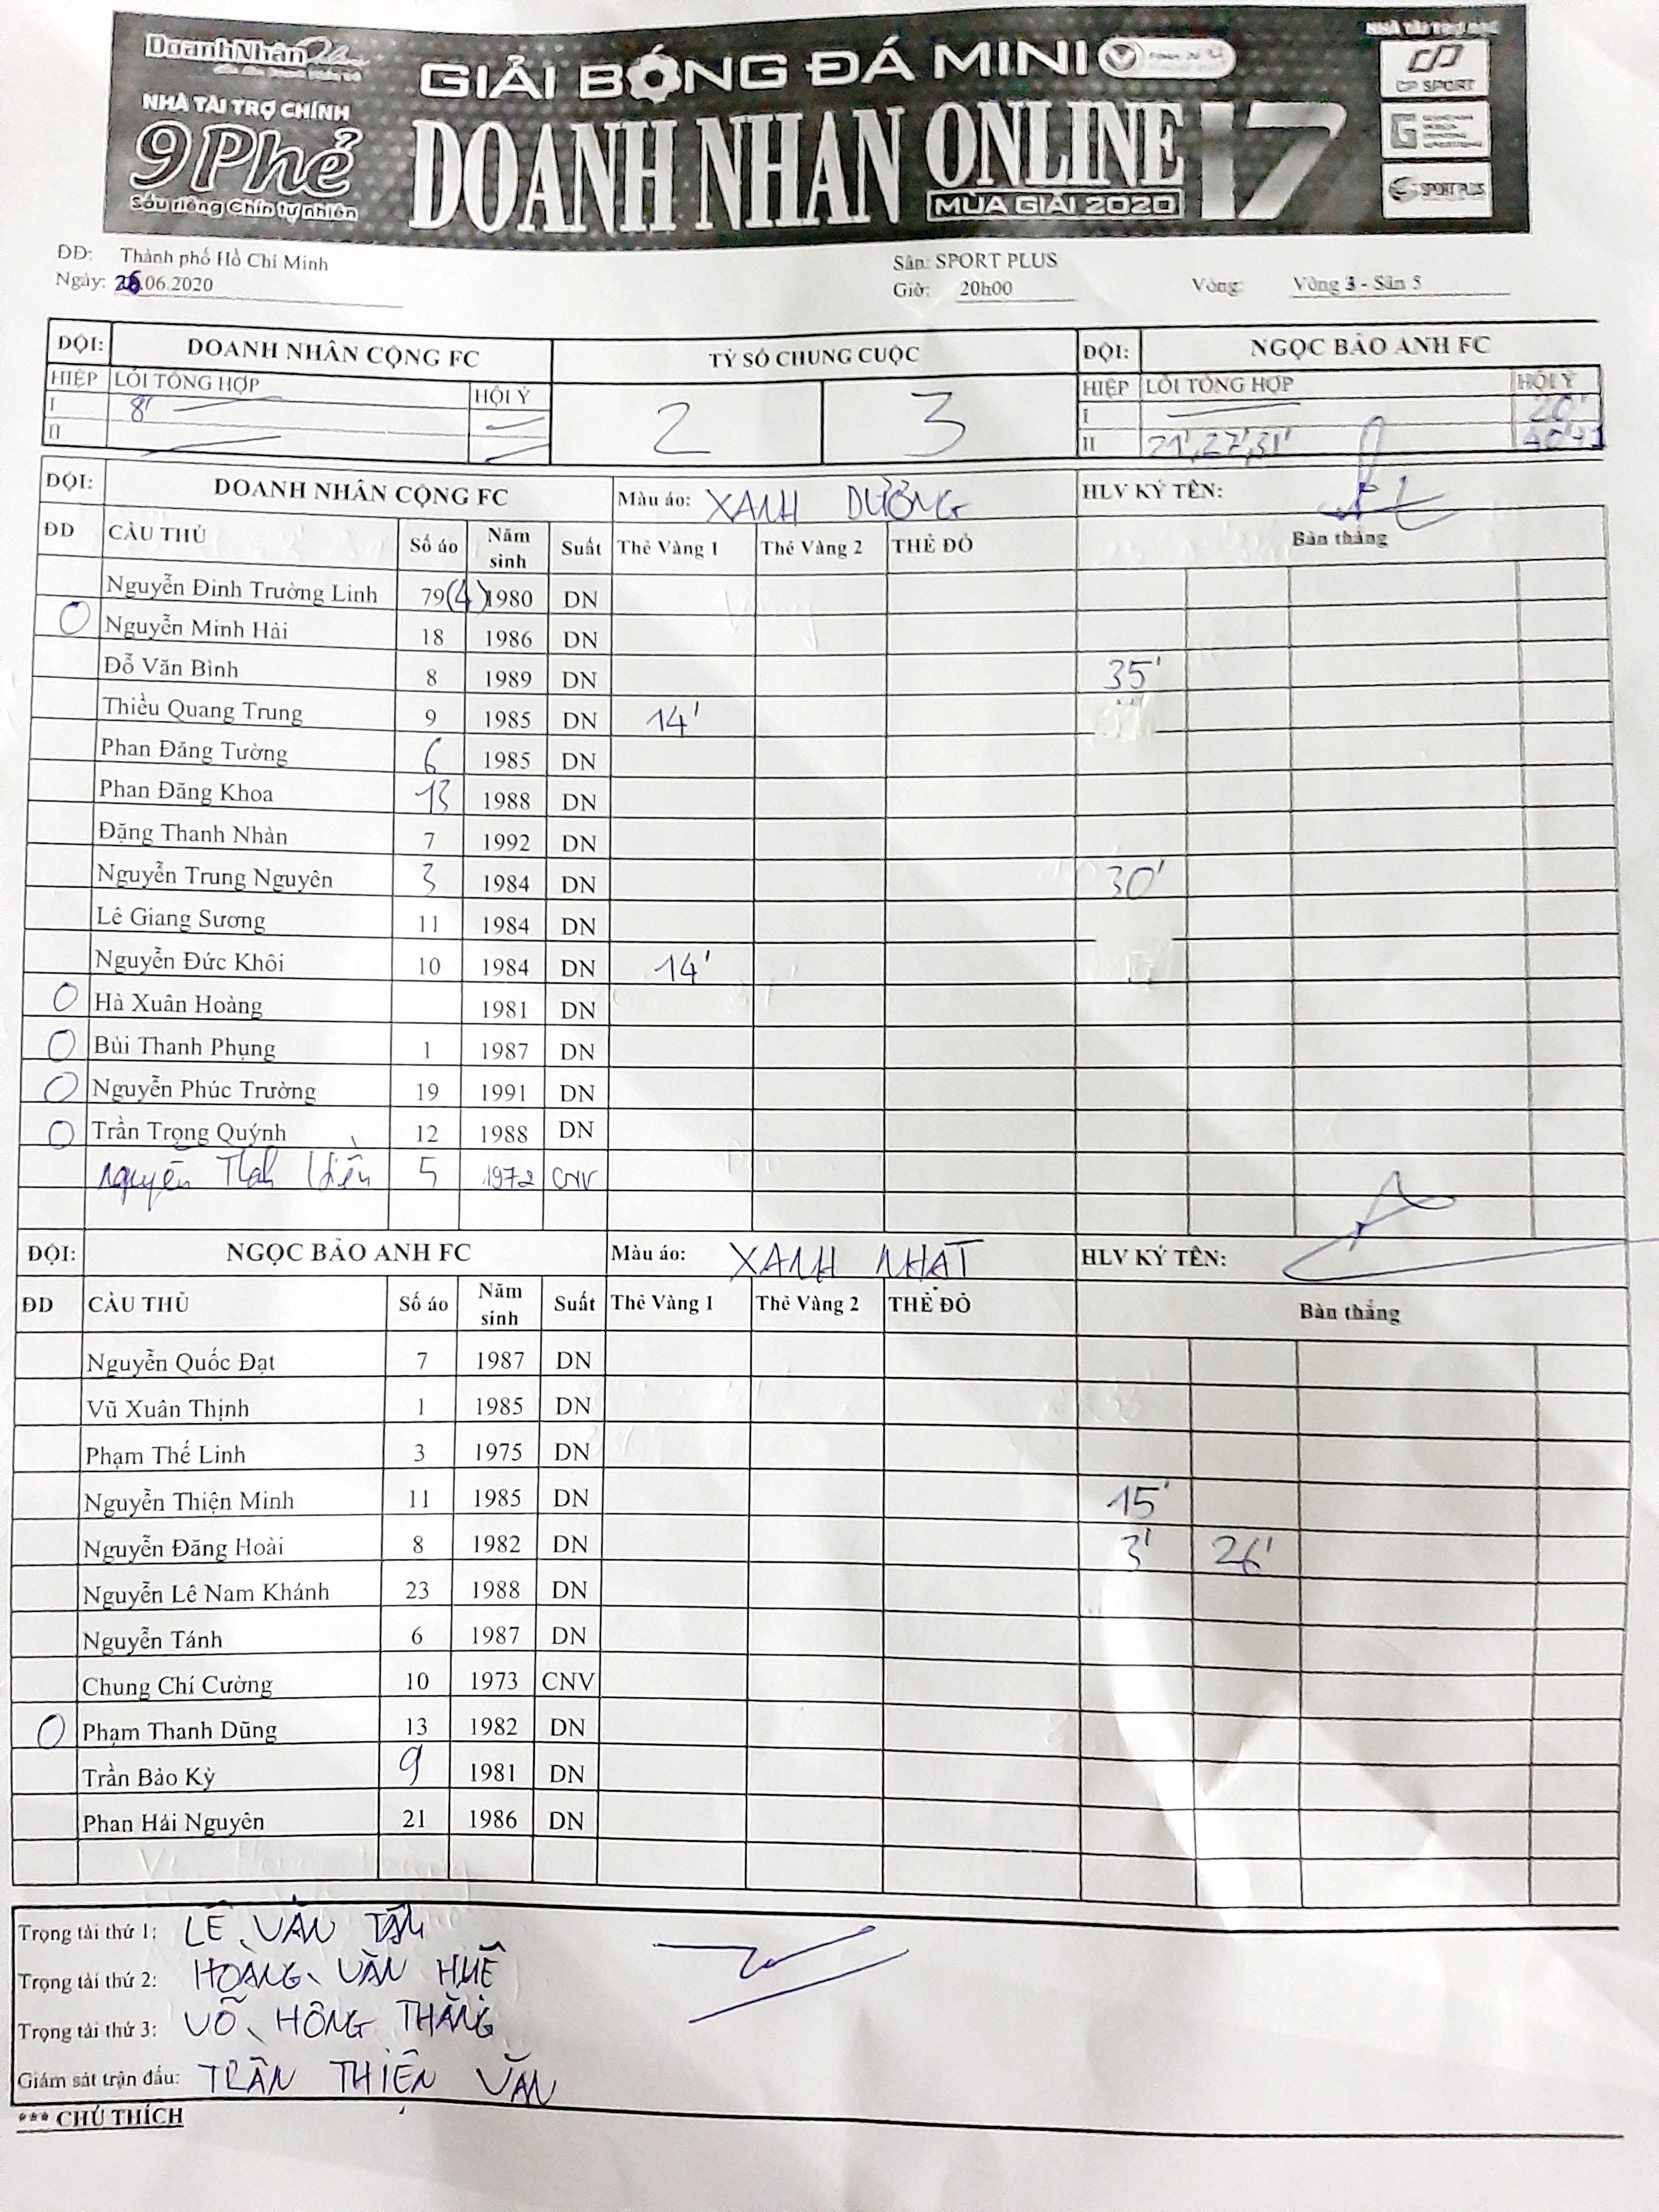 DoanhNhân
NHÀ TÀI TRỢ CHÍNH
9Phẻ
Sầu riêng Chín tự nhiên
GIẢI BÓNG ĐÁ MINI
DOANH NHAN ONLINE 17
MÙA GIẢI 2020
CP SPORT
SPORT PLUS
ĐĐ: Thành phố Hồ Chí Minh Sân: SPORT PLUS
Ngày: 26.06.2020 Giờ: 20h00 Vòng: Vòng 3 - Sân 5
ĐỘI: DOANH NHÂN CỘNG FC TỶ SỐ CHUNG CUỘC ĐỘI: NGỌC BẢO ANH FC
HIỆP LỖI TỔNG HỢP HỘI Ý 2 3 HIỆP LỖI TỔNG HỢP HỘI Ý
I 8' I 20'
II II 21', 27', 31' 40'+1
ĐỘI: DOANH NHÂN CỘNG FC Màu áo: XANH DƯƠNG HLV KÝ TÊN:
ĐD CẦU THỦ Số áo Năm sinh Suất Thẻ Vàng 1 Thẻ Vàng 2 THẺ ĐỎ Bàn thắng
Nguyễn Đinh Trường Linh 79(4) 1980 DN
O Nguyễn Minh Hải 18 1986 DN
Đỗ Văn Bình 8 1989 DN 35'
Thiều Quang Trung 9 1985 DN 14'
Phan Đăng Tường 6 1985 DN
Phan Đăng Khoa 13 1988 DN
Đặng Thanh Nhàn 7 1992 DN
Nguyễn Trung Nguyên 3 1984 DN 30'
Lê Giang Sương 11 1984 DN
Nguyễn Đức Khôi 10 1984 DN 14'
O Hà Xuân Hoàng 1981 DN
O Bùi Thanh Phụng 1 1987 DN
O Nguyễn Phúc Trường 19 1991 DN
O Trần Trọng Quýnh 12 1988 DN
Nguyễn 5 1972 CNV
ĐỘI: NGỌC BẢO ANH FC Màu áo: XANH NHẠT HLV KÝ TÊN:
ĐD CẦU THỦ Số áo Năm sinh Suất Thẻ Vàng 1 Thẻ Vàng 2 THẺ ĐỎ Bàn thắng
Nguyễn Quốc Đạt 7 1987 DN
Vũ Xuân Thịnh 1 1985 DN
Phạm Thế Linh 3 1975 DN
Nguyễn Thiện Minh 11 1985 DN 15'
Nguyễn Đăng Hoài 8 1982 DN 3' 26'
Nguyễn Lê Nam Khánh 23 1988 DN
Nguyễn Tánh 6 1987 DN
Chung Chí Cường 10 1973 CNV
O Phạm Thanh Dũng 13 1982 DN
Trần Bảo Kỳ 9 1981 DN
Phan Hải Nguyên 21 1986 DN
Trọng tài thứ 1: LÊ VĂN TÂN
Trọng tài thứ 2: HOÀNG VĂN HUÊ
Trọng tài thứ 3: VÕ HỒNG THĂNG
Giám sát trận đấu: TRẦN THIỆN VĂN
*** CHÚ THÍCH